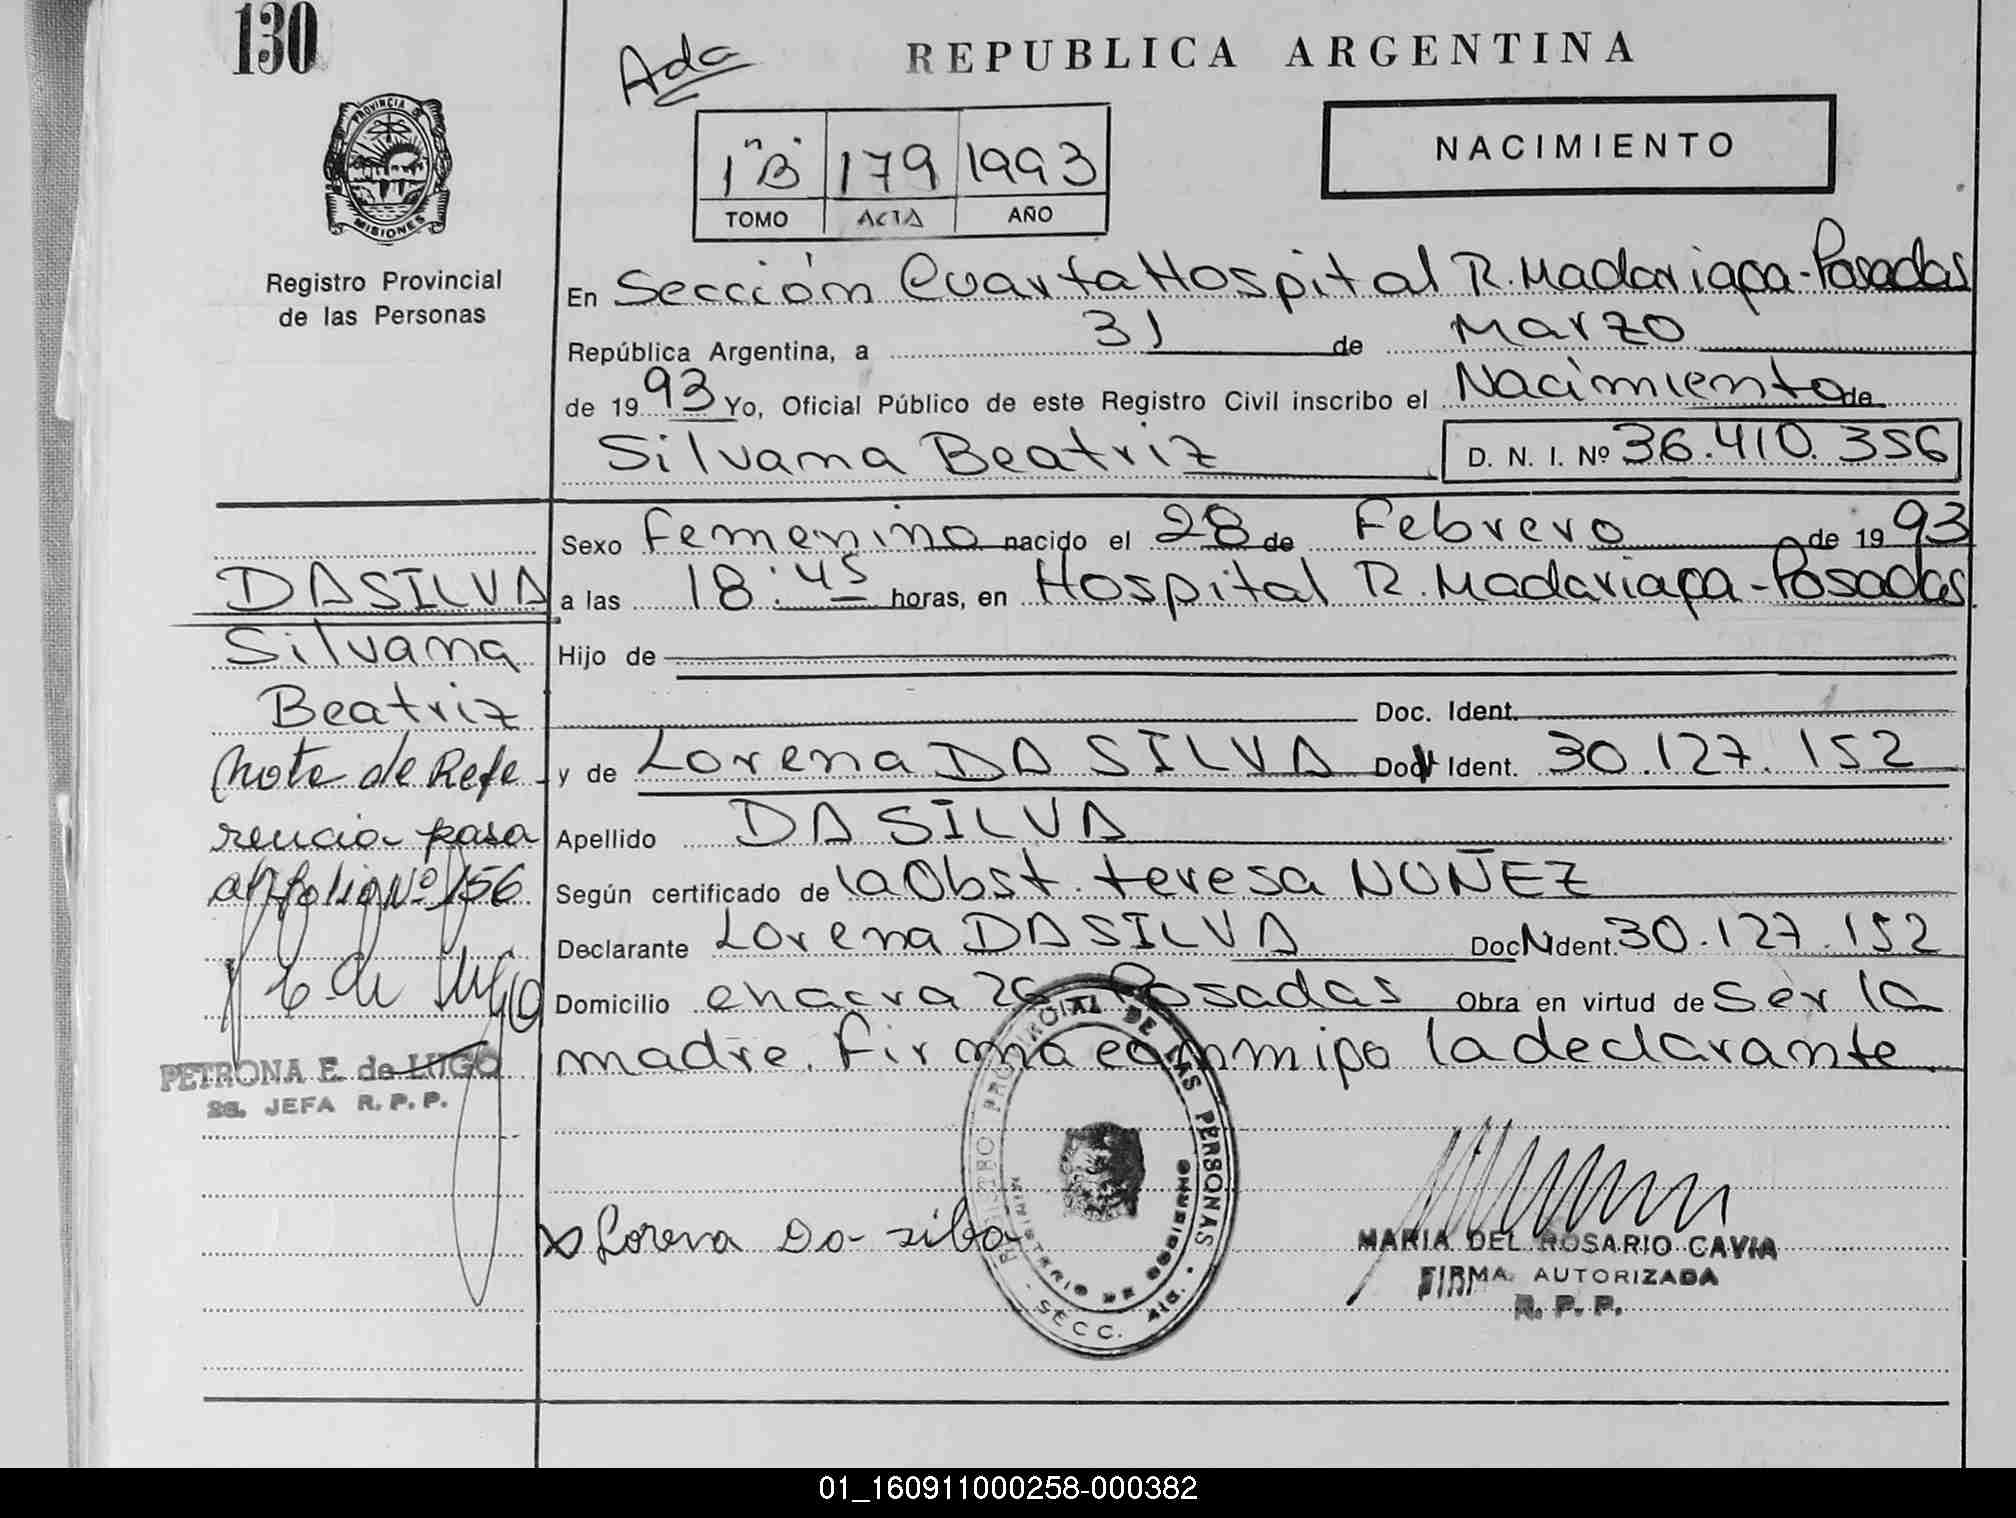 130
Ada
REPUBLICA ARGENTINA
PROVINCIA DE
MISIONES
Registro Provincial
de las Personas
1"B" 179 1993
TOMO ACTA AÑO
NACIMIENTO
En Sección Cuarta Hospital R. Madariaga-Posadas
República Argentina, a 31 de Marzo
de 1993 Yo, Oficial Público de este Registro Civil inscribo el Nacimiento de
Silvana Beatriz D. N. I. Nº 36.410.356
Sexo Femenino nacido el 28 de Febrero de 1993
a las 18:45 horas, en Hospital R. Madariaga-Posadas
Hijo de
Doc. Ident.
y de Lorena DA SILVA Doc. Ident. 30.127.152
Apellido DA SILVA
Según certificado de la Obst. teresa NUÑEZ
Declarante Lorena DA SILVA Doc. Ident. 30.127.152
Domicilio chacra 26 Posadas Obra en virtud de Ser la
madre. Firma conmigo la declarante
DA SILVA
Silvana
Beatriz
Nota de Refe-
rencia pasa
al folio Nº 156
P E de Lugo
PETRONA E. de LUGO
2a. JEFA R. P. P.
Lorena Da silva
REGISTRO PROVINCIAL DE LAS PERSONAS
MINISTERIO DE GOBIERNO
SECC. 4ta.
MARIA DEL ROSARIO CAVIA
FIRMA AUTORIZADA
R. P. P.
01_160911000258-000382